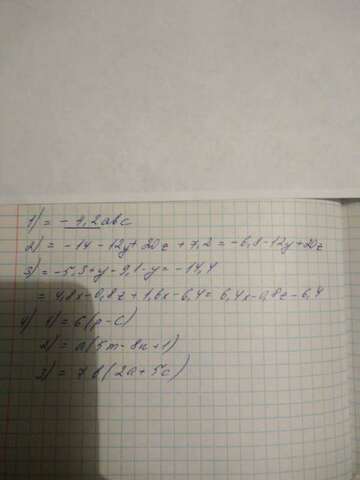 1) = -7,2abc
2) = -14 - 12y + 20z + 7,2 = -6,8 - 12y + 20z
3) = -5,3 + y - 9,1 - y = -14,4
= 4,8x - 0,8z + 1,6x - 6,4 = 6,4x - 0,8z - 6,4
4) 1) = 6(p - c)
2) = a(5m - 8n + 1)
3) = 7b(2a + 5c)